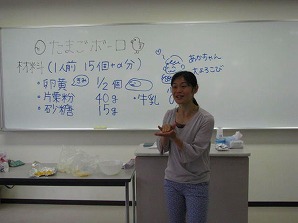 たまごボーロ
材料(1人前 15個+α分)
・卵黄(きみ) 1/2個
・片栗粉 40g ・牛乳
・砂糖 15g
あかちゃん
大よろこび